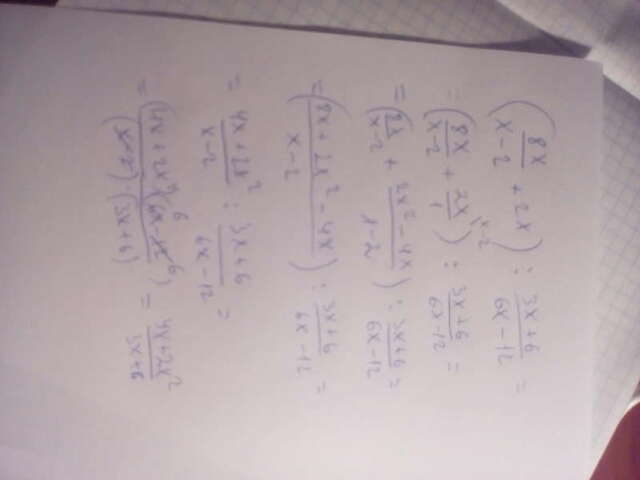 (8x/(x-2) + 2x) : (3x+6)/(6x-12) =
= (8x/(x-2) + 2x/1 x-2) : (3x+6)/(6x-12) =
= (8x/(x-2) + (2x²-4x)/(x-2)) : (3x+6)/(6x-12) =
= ((8x+2x²-4x)/(x-2)) : (3x+6)/(6x-12) =
= (4x+2x²)/(x-2) : (3x+6)/(6x-12) =
= (4x+2x²)(6x-12)6/(x-2)·(3x+6) = (4x+2x²)/(3x+6)